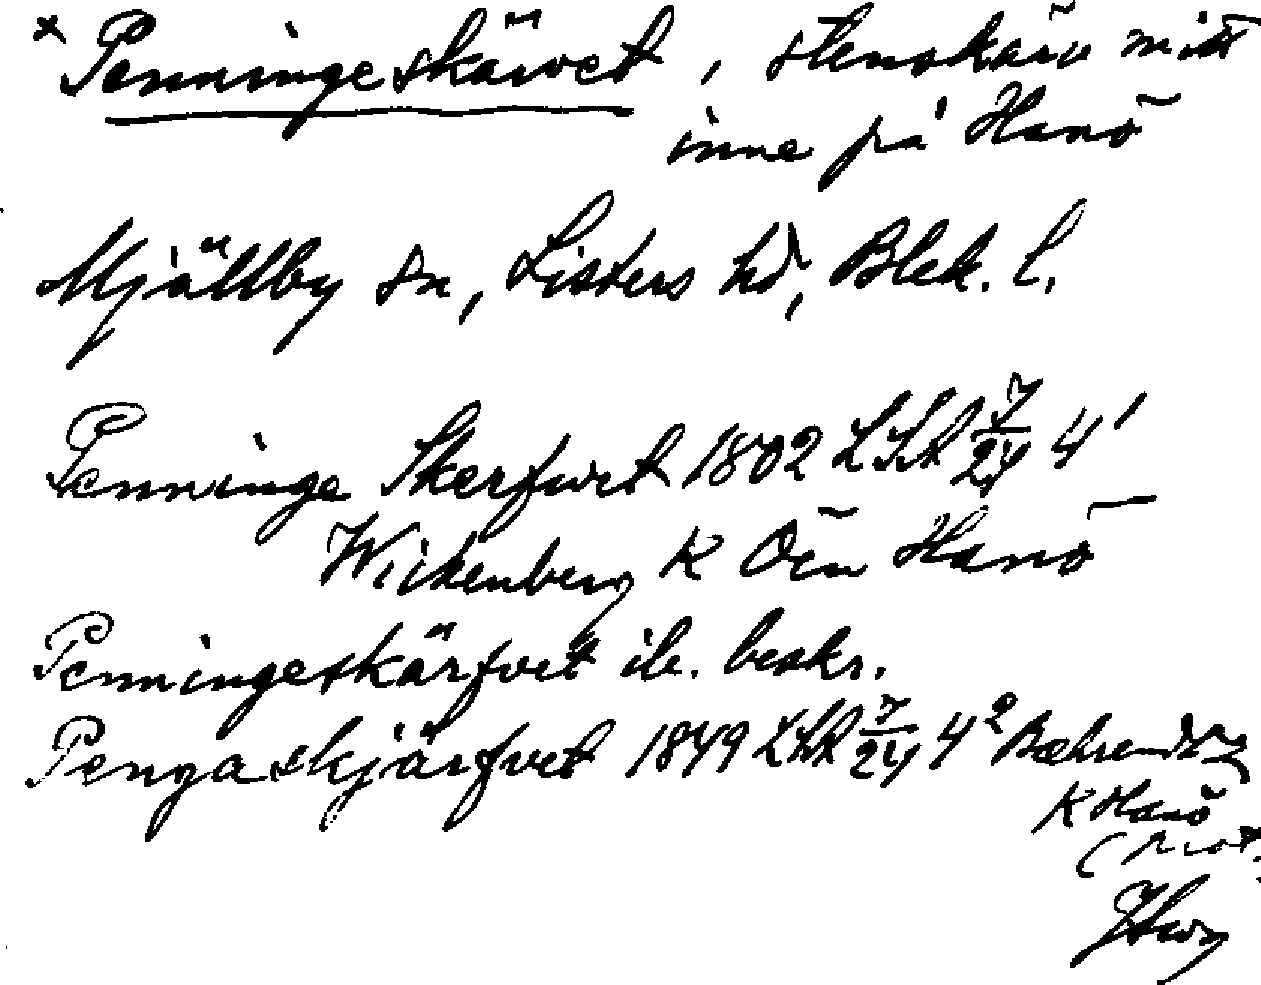 * Penningeskärvet, stenskärv mitt
inne på Hanö
Mjällby sn, Listers hd, Blek. l.
Penninge Skerfwet 1802 LSK 7/24 4¹
Wickenberg K Öen Hanö
Penningeskärfvet ib. beskr.
Pengaskjärfvet 1849 LSK 7/24 4² Bæhrendtz
K Hanö
(prot.